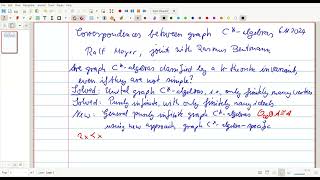 Correspondences between graph C*-algebras 6.11.2024
Ralf Meyer, joint with Rasmus Bentmann
Are graph C*-algebras classified by a K-theoretic invariant,
even if they are not simple?
Solved: Unital graph C*-algebras, i.e., only finitely many vertices
Solved: Purely infinite, with only finitely many ideals.
New: General purely infinite graph C*-algebras O∞⊗A≅A
using new approach, graph C*-algebra-specific